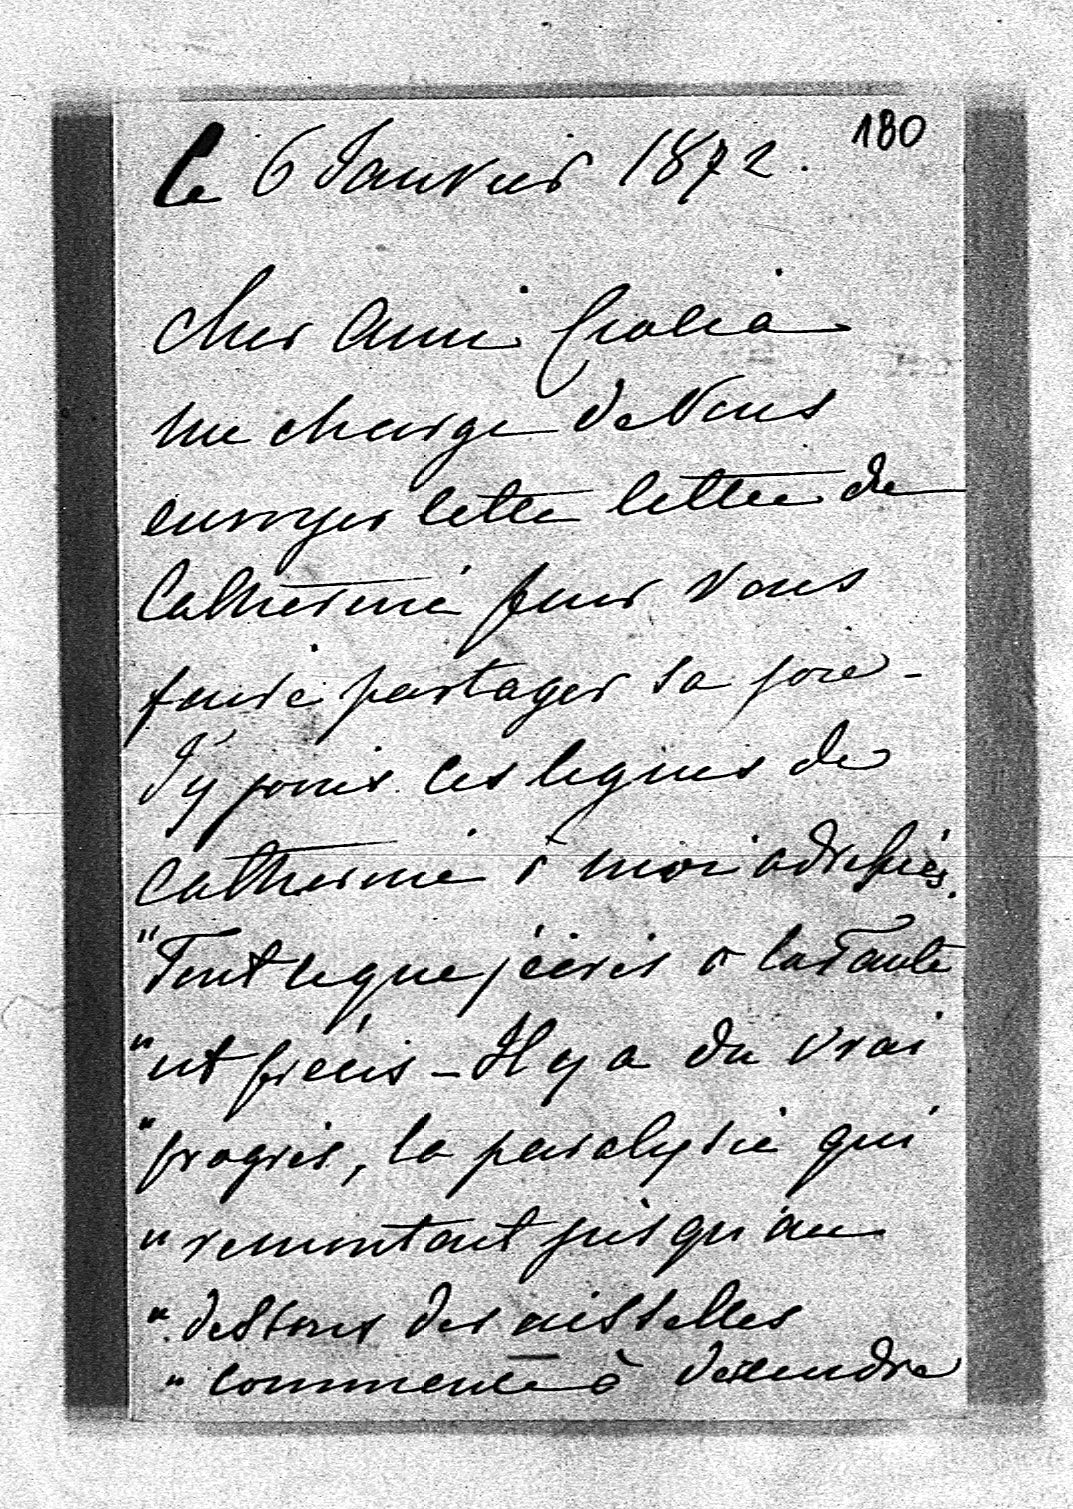 180
Le 6 Janvier 1872.
Cher Ami
me charge de Vous
envoyer cette lettre de
Catherine pour vous
faire partager sa joie -
J'y joins ces lignes de
Catherine à moi adressées.
"Tout ce que j'écris à la Tante
"est précis - Il y a du vrai
"progrès, la paralysie qui
"remontant jusqu'au
"dessous des aisselles
"commence à descendre